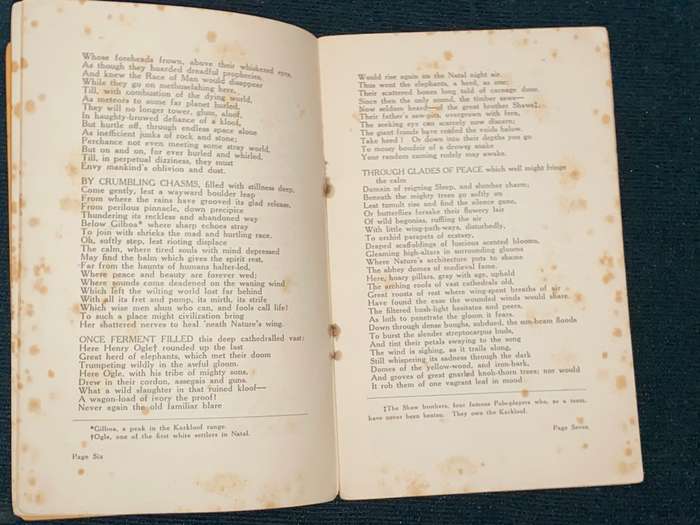 Whose foreheads frown, above their whiskered eyes,
As though they hoarded dreadful prophecies,
And knew the Race of Man would disappear
While they go on methuselahing here,
Till, with combustion of the dying world,
As meteors to some far planet hurled,
They will no longer tower, glum, aloof,
In haughty-browed defiance of a kloof,
But hurtle off, through endless space alone
As inefficient junks of rock and stone;
Perchance not even meeting some stray world,
But on and on, for ever hurled and whirled,
Till, in perpetual dizziness, they must
Envy mankind's oblivion and dust.
BY CRUMBLING CHASMS, filled with stillness deep,
Come gently, lest a wayward boulder leap
From where the rains have grooved its glad release,
From perilous pinnacle, down precipice
Thundering its reckless and abandoned way
Below Gilboa* where sharp echoes stray
To join with shrieks the mad and hurtling race.
Oh, softly step, lest rioting displace
The calm, where tired souls with mind depressed
May find the balm which gives the spirit rest,
Far from the haunts of humans halter-led,
Where peace and beauty are forever wed;
Where sounds come deadened on the waning wind
Which left the writing world lost far behind
With all its fret and pump, its mirth, its strife
Which wise men shun who can, and fools call life!
To such a place might civilization bring
Her shattered nerves to heal 'neath Nature's wing.
ONCE FERMENT FILLED this deep cathedralled vast:
Here Henry Ogle† rounded up the last
Great herd of elephants, which met their doom
Trumpeting wildly in the awful gloom.
Here Ogle, with his tribe of mighty sons,
Drew in their cordon, assegais and guns.
What a wild slaughter in that ruined kloof—
A wagon-load of ivory the proof!
Never again the old familiar blare
*Gilboa, a peak in the Karkloof range.
†Ogle, one of the first white settlers in Natal.
Page Six
Would rise again on the Natal night air.
Thus went the elephants, a herd, as one;
Their scattered bones long told of carnage done.
Since then the only sound, the timber saws—
Now seldom heard—of the great brother Shaws‡.
Their father's saw-pits, overgrown with fern,
The seeking eye can scarcely now discern;
The giant fronds have reeded the voids below.
Take heed! Or down into their depths you go
To mossy boudoir of a drowsy snake
Your random coming rudely may awake.
THROUGH GLADES OF PEACE which well might fringe
the calm
Domain of reigning Sleep, and slumber charm;
Beneath the mighty trees go softly on
Lest tumult rise and find the silence gone,
Or butterflies forsake their flowery lair
Of wild begonias, ruffling the air
With little wing-path-ways, disturbedly,
To orchid parapets of ecstasy,
Draped scaffoldings of luscious scented blooms,
Gleaming high-altars in surrounding glooms
Where Nature's architecture puts to shame
The abbey domes of medieval fame.
Here, hoary pillars, gray with age, uphold
The arching roofs of vast cathedrals old,
Great roosts of rest where wing-spent breaths of air
Have found the ease the wounded winds would share.
The filtered bush-light hesitates and peers,
As loth to penetrate the gloom it fears.
Down through dense boughs, subdued, the sun-beam floods
To burst the slender streptocarpus buds,
And tint their petals swaying to the song
The wind is sighing, as it trails along,
Still whispering its sadness through the dark
Domes of the yellow-wood, and iron-bark,
And groves of great gnarled knob-thorn trees; nor would
It rob them of one vagrant leaf in mood
‡The Shaw brothers, four famous Polo-players who, as a team,
have never been beaten. They own the Karkloof.
Page Seven